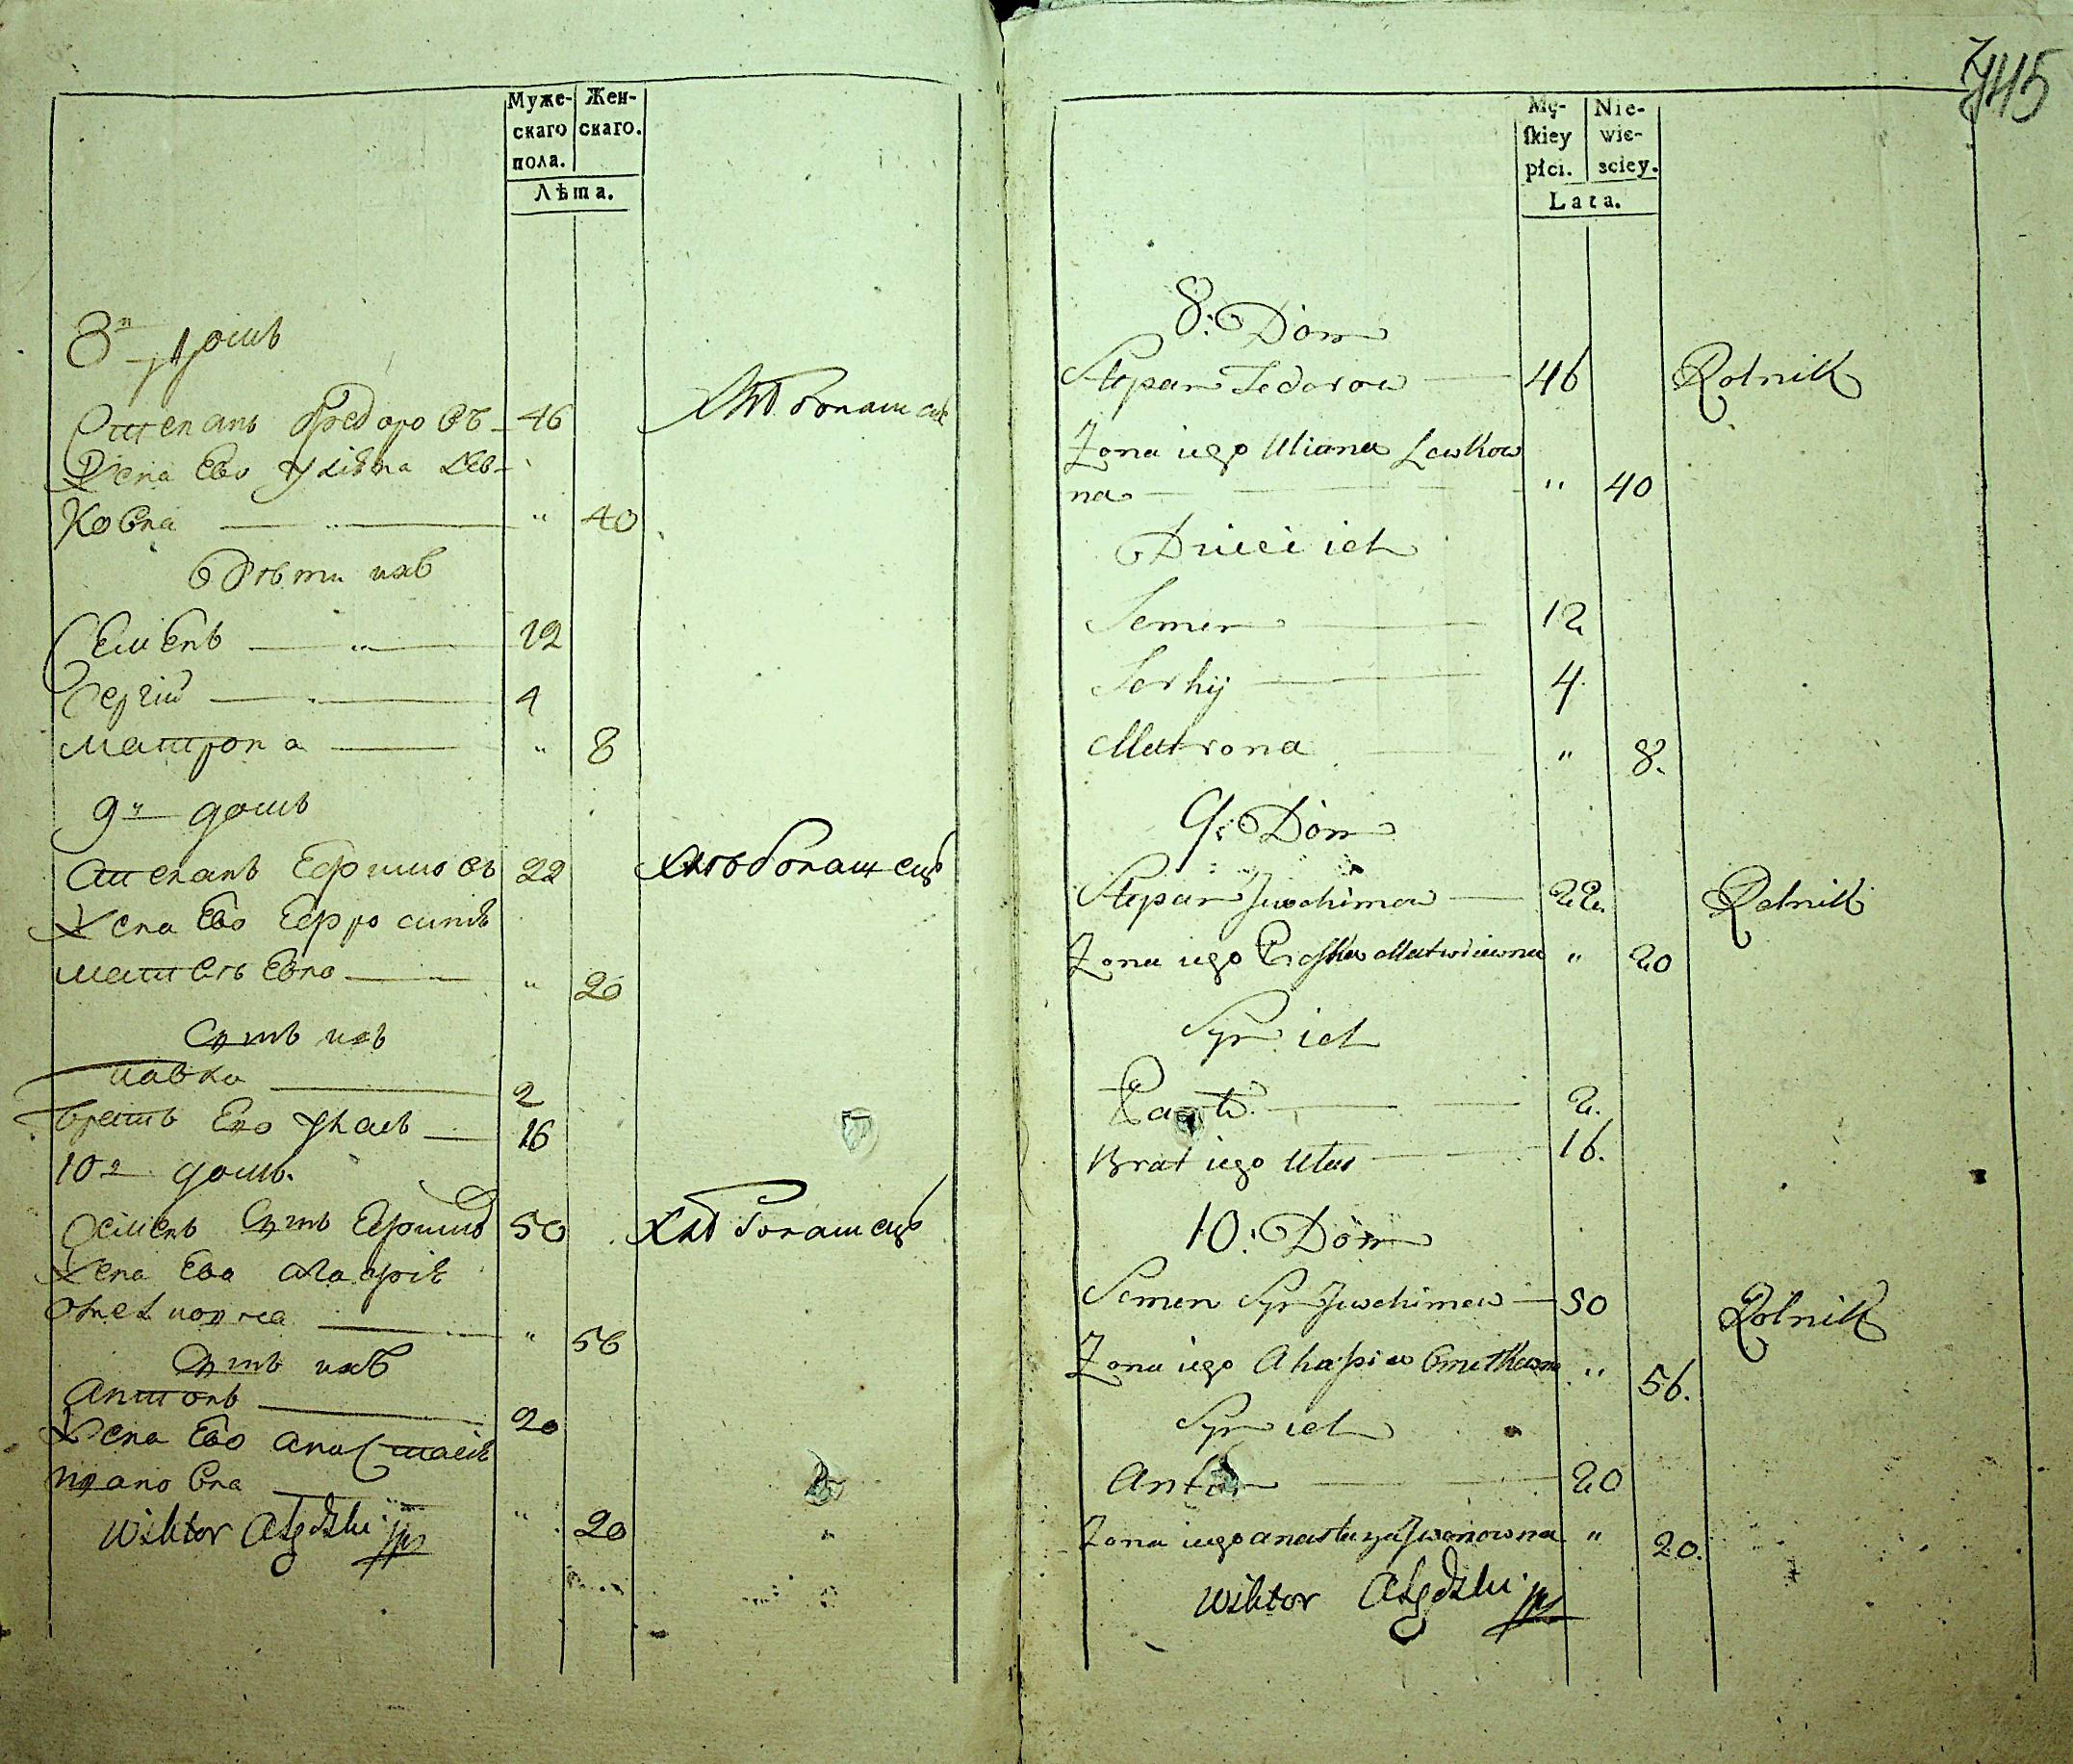 Муже-
скаго
пола.
Жен-
скаго.
Лѣта.
8й домъ
Степанъ Федоровъ 46 Хлѣбопашецъ
Жена Ево Улiяна Лев-
ковна " 40
Дѣти ихъ
Семенъ " 12
Сергiй 4
Матрона " 8
9й домъ
Степанъ Ефимовъ 22 Хлѣбопашецъ
Жена Ево
" 20
Сынъ ихъ
Павло 2
Братъ Ево 16
10й домъ.
Семенъ Сынъ Ефимов 50 Хлѣбопашецъ
Жена Ева Агафiя
" 56
Сынъ ихъ
Антонъ 20
Жена Ево Анастасiя
Ивановна
Wiktor " 20
745
Mę-
ſkiey
płci.
Nie-
wie-
sciey.
Lata.
8: Dom
Stepan Fedorow 46 Rolnik
Zona iego Uliana Lewkow
na " 40
Dzieci ich
Semen 12
Serhij 4.
Matrona " 8.
9: Dom
Stepan Juchimow 22. Rolnik
Zona iego Proſka Matwiiewna " 20
Syn ich
Pawło 2.
Brat iego Ułas 16.
10: Dom
Semen Syn Juchimow 50 Rolnik
Zona iego Ahafia " 56.
Syn ich
Anton 20
Zona iego Anastazya Jwanowna " 20.
Wiktor